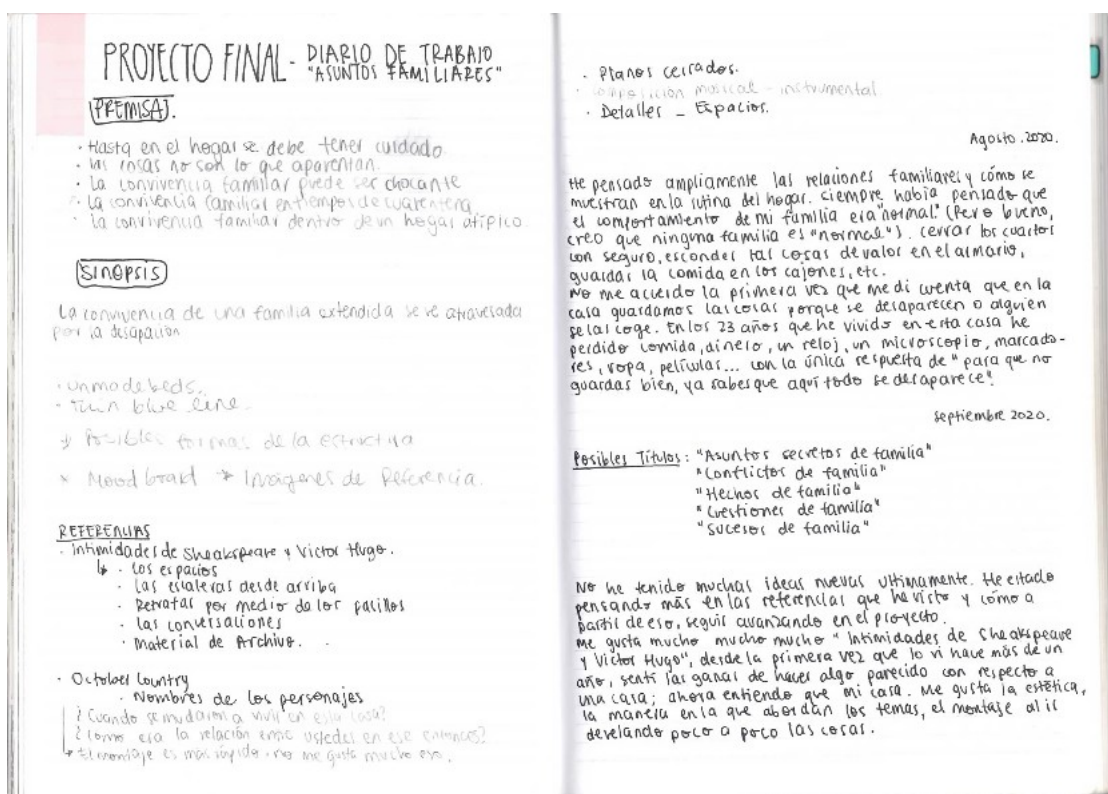 PROYECTO FINAL - DIARIO DE TRABAJO
"ASUNTOS FAMILIARES"
PREMISA.
· Hasta en el hogar se debe tener cuidado
· las cosas no son lo que aparentan.
· La convivencia familiar puede ser chocante
· La convivencia familiar en tiempos de cuarentena
· la convivencia familiar dentro de un hogar atípico.
SINOPSIS
La convivencia de una familia extendida se ve atravesada
por la
· unmade beds.
· blue line.
Posibles formas de la estructura
Mood board → Imágenes de Referencia.
REFERENCIAS
· Intimidades de Sheakspeare y Victor Hugo.
↳ · Los espacios
· Las escaleras desde arriba
· Retratar por medio de los pasillos
· Las conversaciones
· Material de Archivo.
· October Country
· Nombres de los personajes
¿Cuando se mudaron a vivir en esta casa?
¿Cómo era la relación entre ustedes en ese entonces?
El montaje es más rápido - no me gusta mucho eso.
· Planos cerrados.
· Composición musical - instrumental
· Detalles - Espacios.
Agosto. 2020.
He pensado ampliamente las relaciones familiares y cómo se
muestran en la rutina del hogar. siempre había pensado que
el comportamiento de mi familia era "normal" (Pero bueno,
creo que ninguna familia es "normal"). cerrar los cuartos
con seguro, esconder las cosas de valor en el armario,
guardar la comida en los cajones, etc.
No me acuerdo la primera vez que me di cuenta que en la
casa guardamos las cosas porque se desaparecen o alguien
se las coge. En los 23 años que he vivido en esta casa he
perdido comida, dinero, un reloj, un microscopio, marcado-
res, ropa, películas... con la única respuesta de "para que no
guardas bien, ya sabes que aquí todo se desaparece".
septiembre 2020.
Posibles Títulos: "Asuntos secretos de familia"
"Conflictos de familia"
"Hechos de familia"
"Cuestiones de familia"
"Sucesos de familia"
No he tenido muchas ideas nuevas ultimamente. He estado
pensando más en las referencias que he visto y cómo a
partir de eso, seguir avanzando en el proyecto.
Me gusta mucho mucho mucho "Intimidades de Sheakspeare
y Victor Hugo", desde la primera vez que lo vi hace más de un
año, sentí las ganas de hacer algo parecido con respecto a
una casa; ahora entiendo que mi casa. Me gusta la estética,
la manera en la que abordan los temas, el montaje al ir
develando poco a poco las cosas.